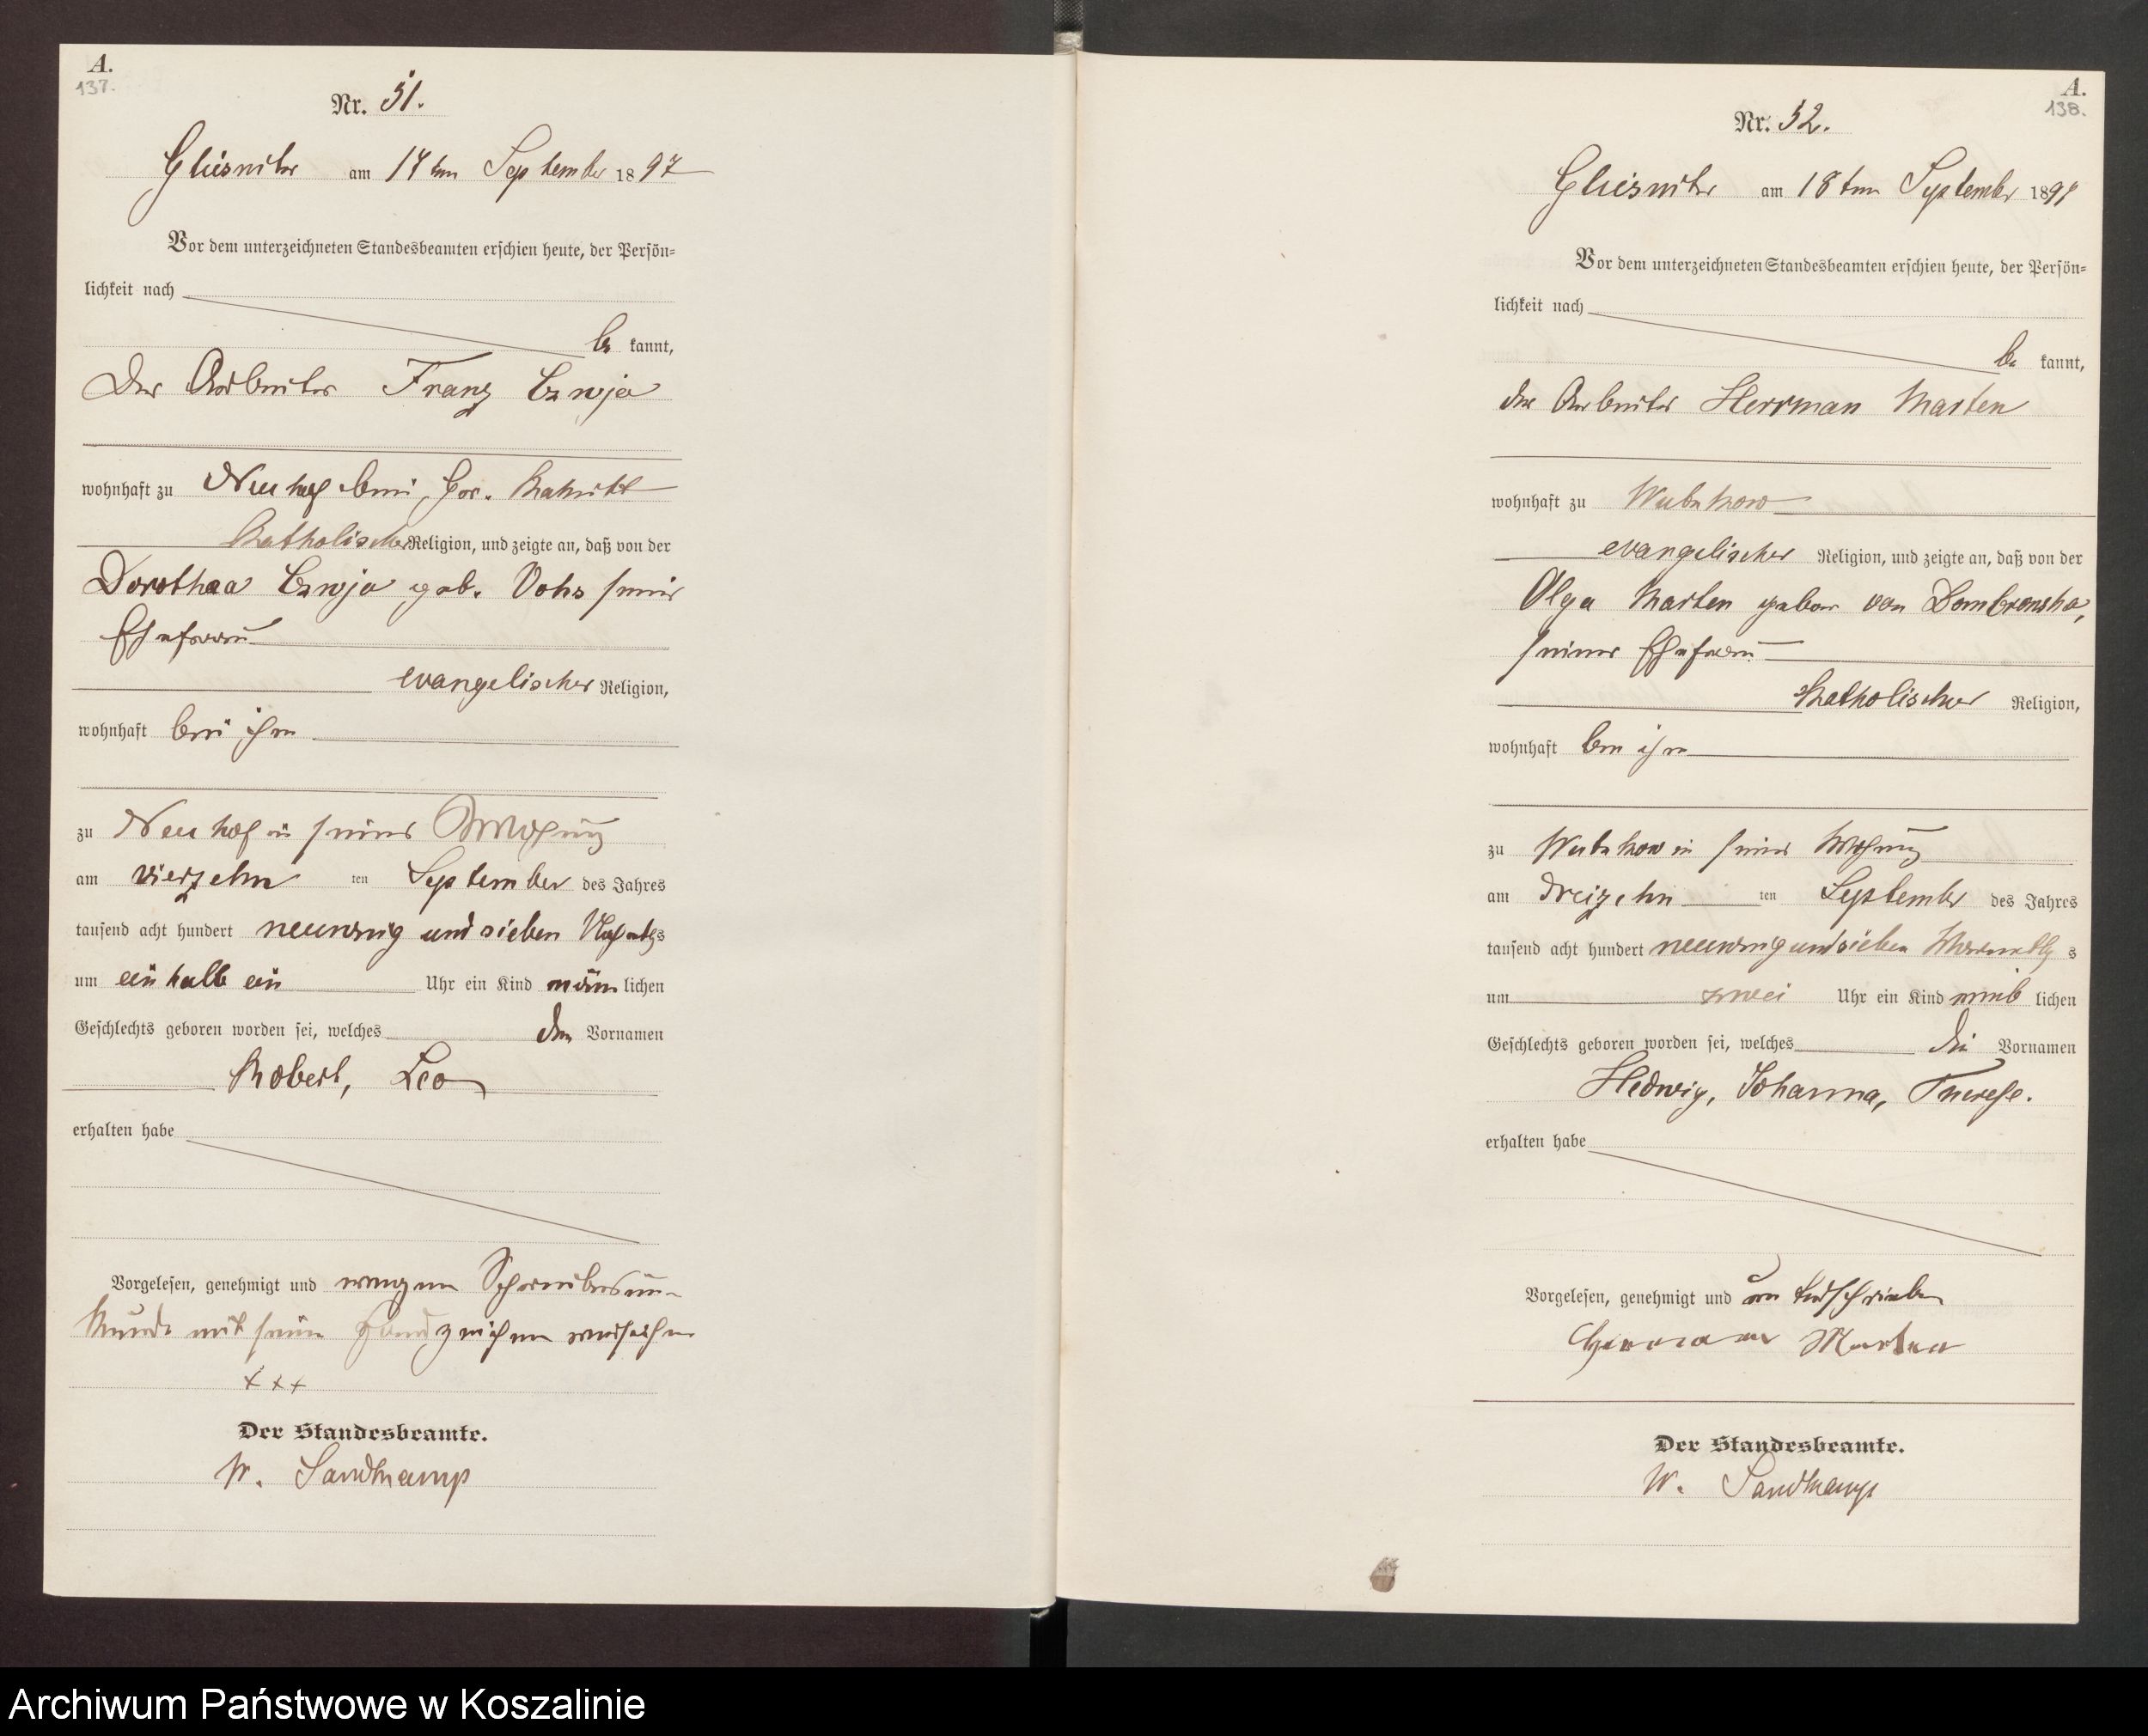 A.
137.
Nr. 51.
Gliesnitz am 17ten September 1897
Vor dem unterzeichneten Standesbeamten erschien heute, der Persön-
lichkeit nach
be kannt,
Der Arbeiter Franz Czwja
wohnhaft zu Neuhof bei
katholischer Religion, und zeigte an, daß von der
Dorothea Czwja geb. Vohs seiner
Ehefrau
evangelischer Religion,
wohnhaft bei ihm
zu Neuhof in seiner Wohnung
am vierzehn ten September des Jahres
tausend acht hundert neunzig und sieben Nachmittags
um ein halb ein Uhr ein Kind männ lichen
Geschlechts geboren worden sei, welches den Vornamen
Robert, Leo
erhalten habe
Vorgelesen, genehmigt und wegen Schreibensun-
kunde mit seinem Handzeichen versehen
+++
Der Standesbeamte.
W. Sandkamp
A.
138.
Nr. 52.
Gliesnitz am 18ten September 1897
Vor dem unterzeichneten Standesbeamten erschien heute, der Persön-
lichkeit nach
be kannt,
der Arbeiter Herrman Marten
wohnhaft zu
evangelischer Religion, und zeigte an, daß von der
Olga Marten gebor von
seiner Ehefrau
katholischer Religion,
wohnhaft bei ihm
zu in seiner Wohnung
am dreizehn ten September des Jahres
tausend acht hundert neunzig und sieben Vormittag s
um zwei Uhr ein Kind weib lichen
Geschlechts geboren worden sei, welches die Vornamen
Hedwig, Johanna, Therese.
erhalten habe
Vorgelesen, genehmigt und unterschrieben
Hermann Marten
Der Standesbeamte.
W. Sandkamp
Archiwum Państwowe w Koszalinie